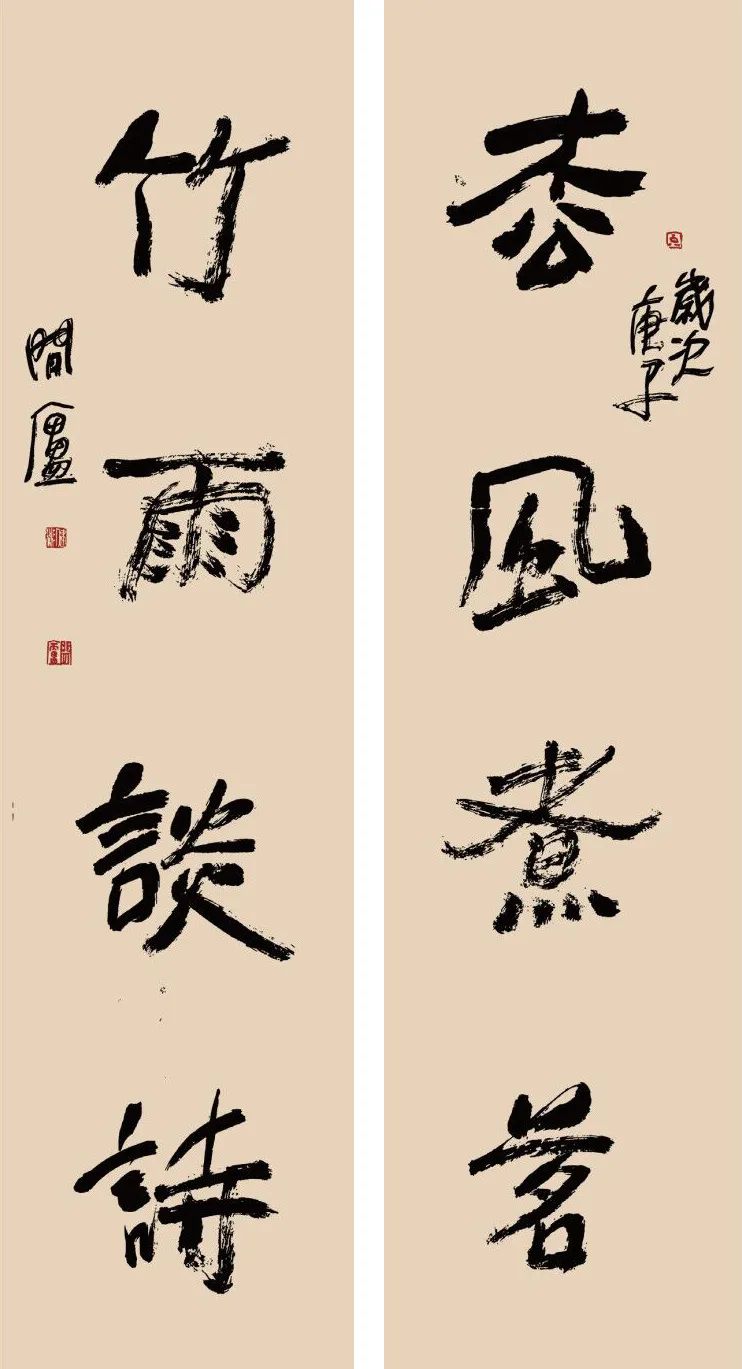 枀風煮茗
歲次
庚子
竹雨談詩
間廬